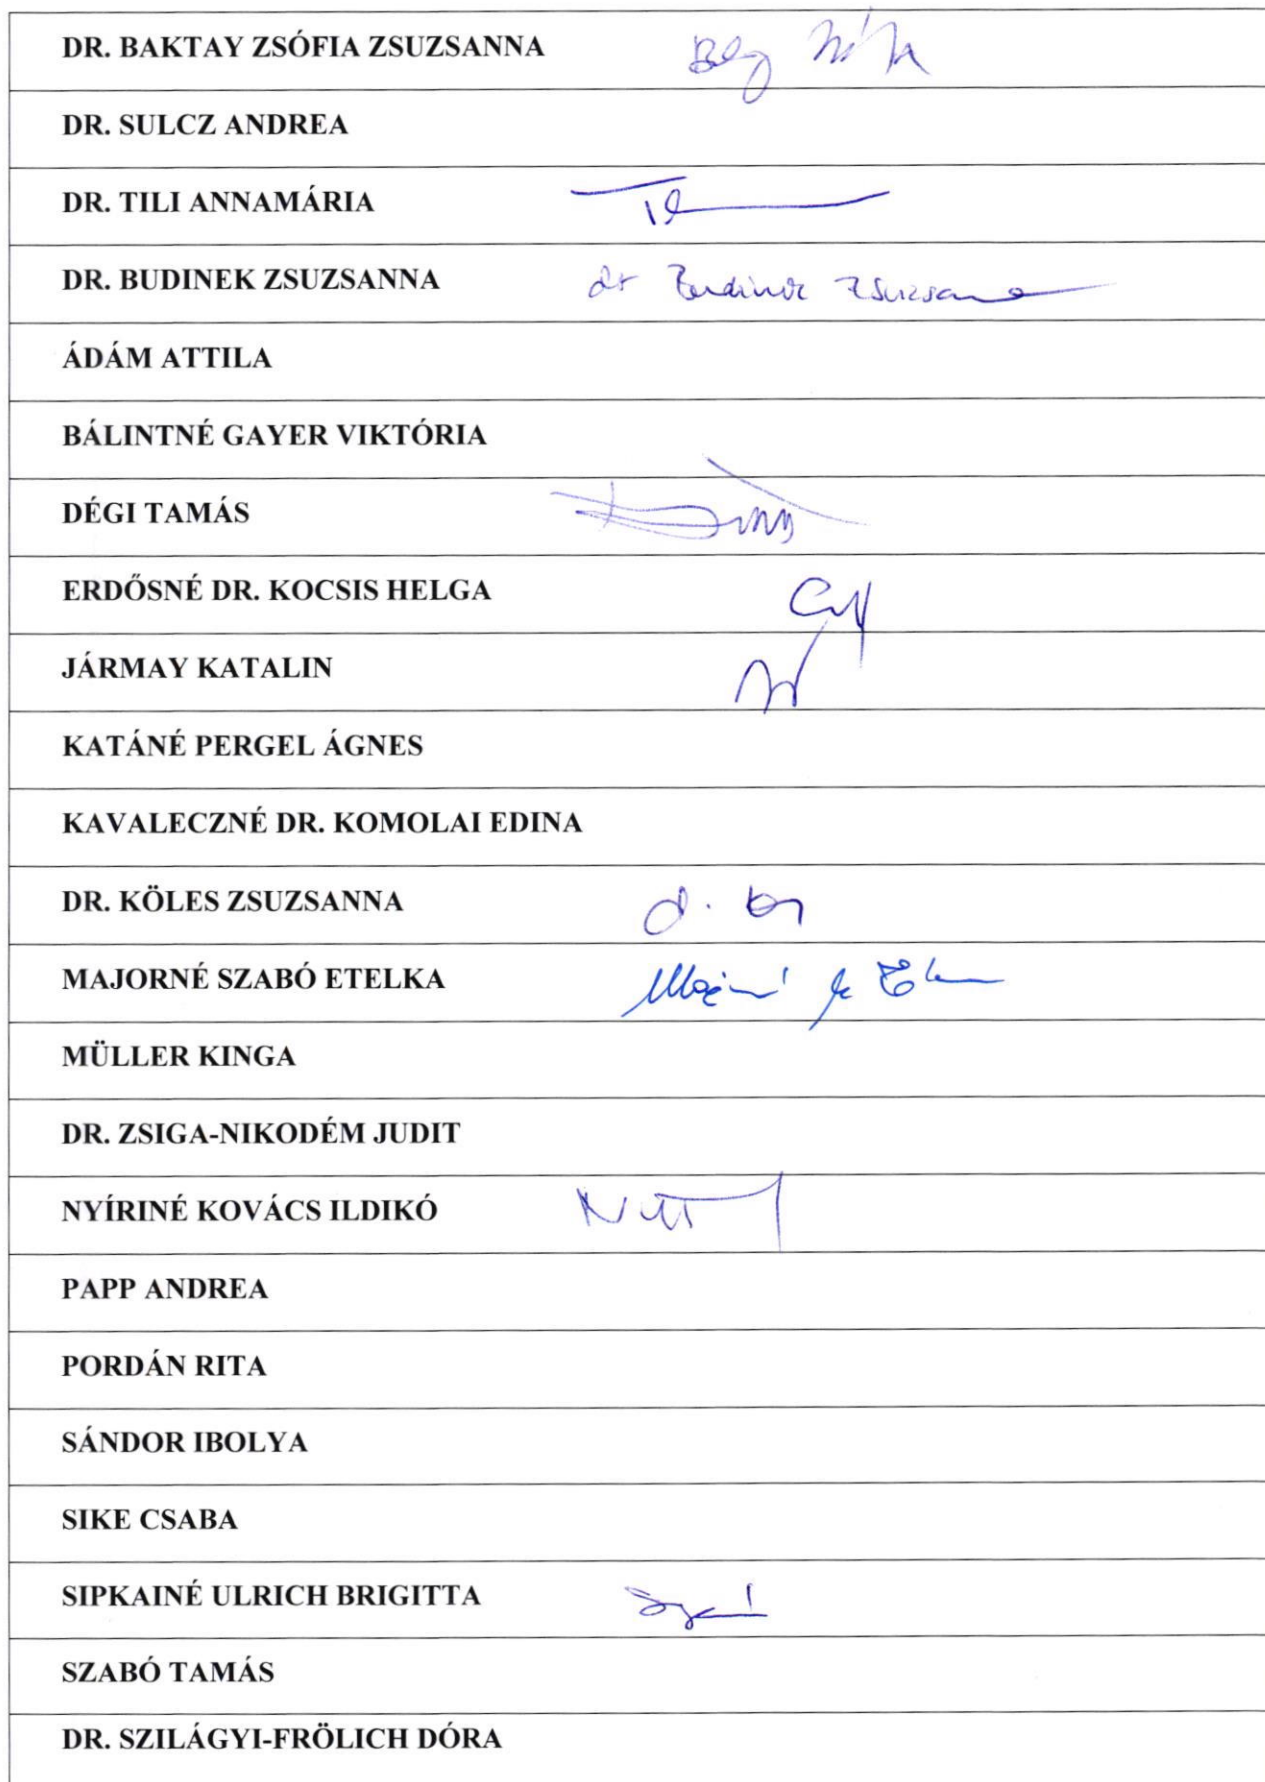 DR. BAKTAY ZSÓFIA ZSUZSANNA
DR. SULCZ ANDREA
DR. TILI ANNAMÁRIA
DR. BUDINEK ZSUZSANNA dr Budinek Zsuzsanna
ÁDÁM ATTILA
BÁLINTNÉ GAYER VIKTÓRIA
DÉGI TAMÁS
ERDŐSNÉ DR. KOCSIS HELGA
JÁRMAY KATALIN
KATÁNÉ PERGEL ÁGNES
KAVALECZNÉ DR. KOMOLAI EDINA
DR. KÖLES ZSUZSANNA
MAJORNÉ SZABÓ ETELKA
MÜLLER KINGA
DR. ZSIGA-NIKODÉM JUDIT
NYÍRINÉ KOVÁCS ILDIKÓ
PAPP ANDREA
PORDÁN RITA
SÁNDOR IBOLYA
SIKE CSABA
SIPKAINÉ ULRICH BRIGITTA
SZABÓ TAMÁS
DR. SZILÁGYI-FRÖLICH DÓRA